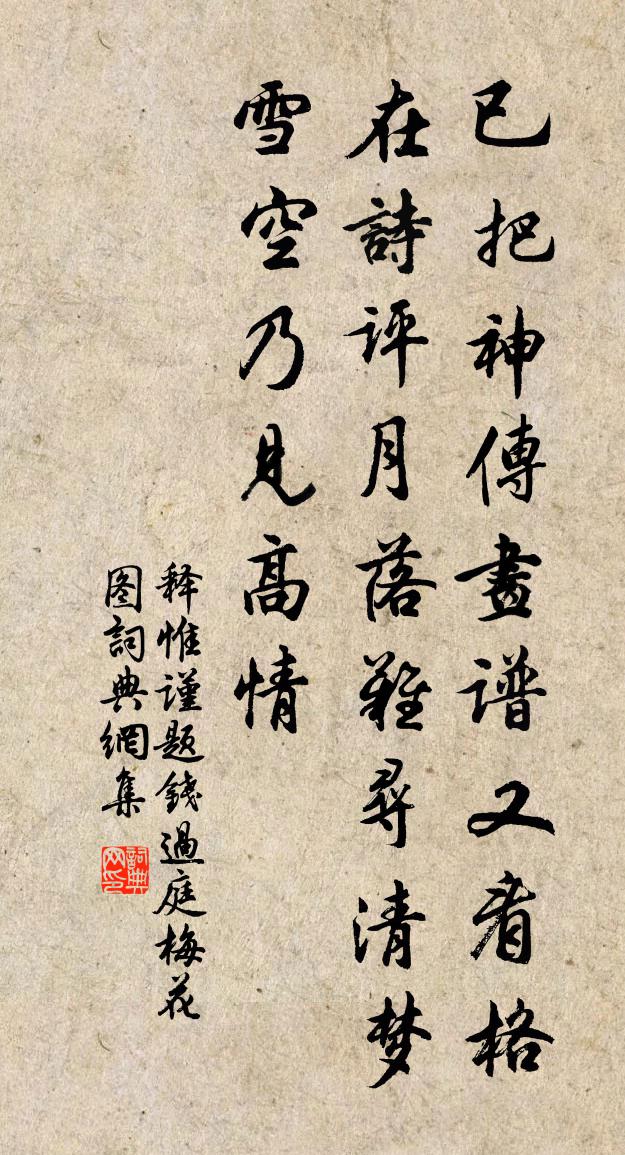 已把神傳畫谱又看格
在詩评月落難尋清梦
雪空乃見高情
释惟谨题錢過庭梅花
图詞典網集
詞典
网印